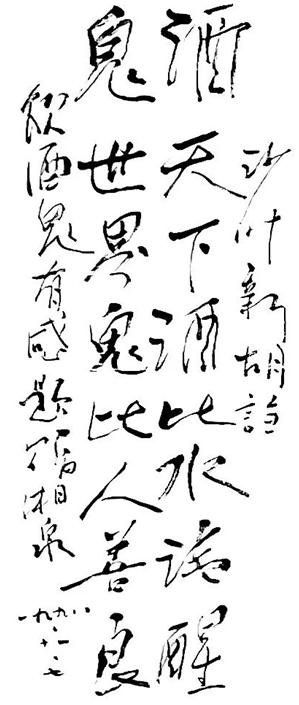 沙叶新胡謅
酒天下酒比水清醒
鬼世界鬼比人善良
飲酒鬼有感题湘泉
一九九八.十一.七